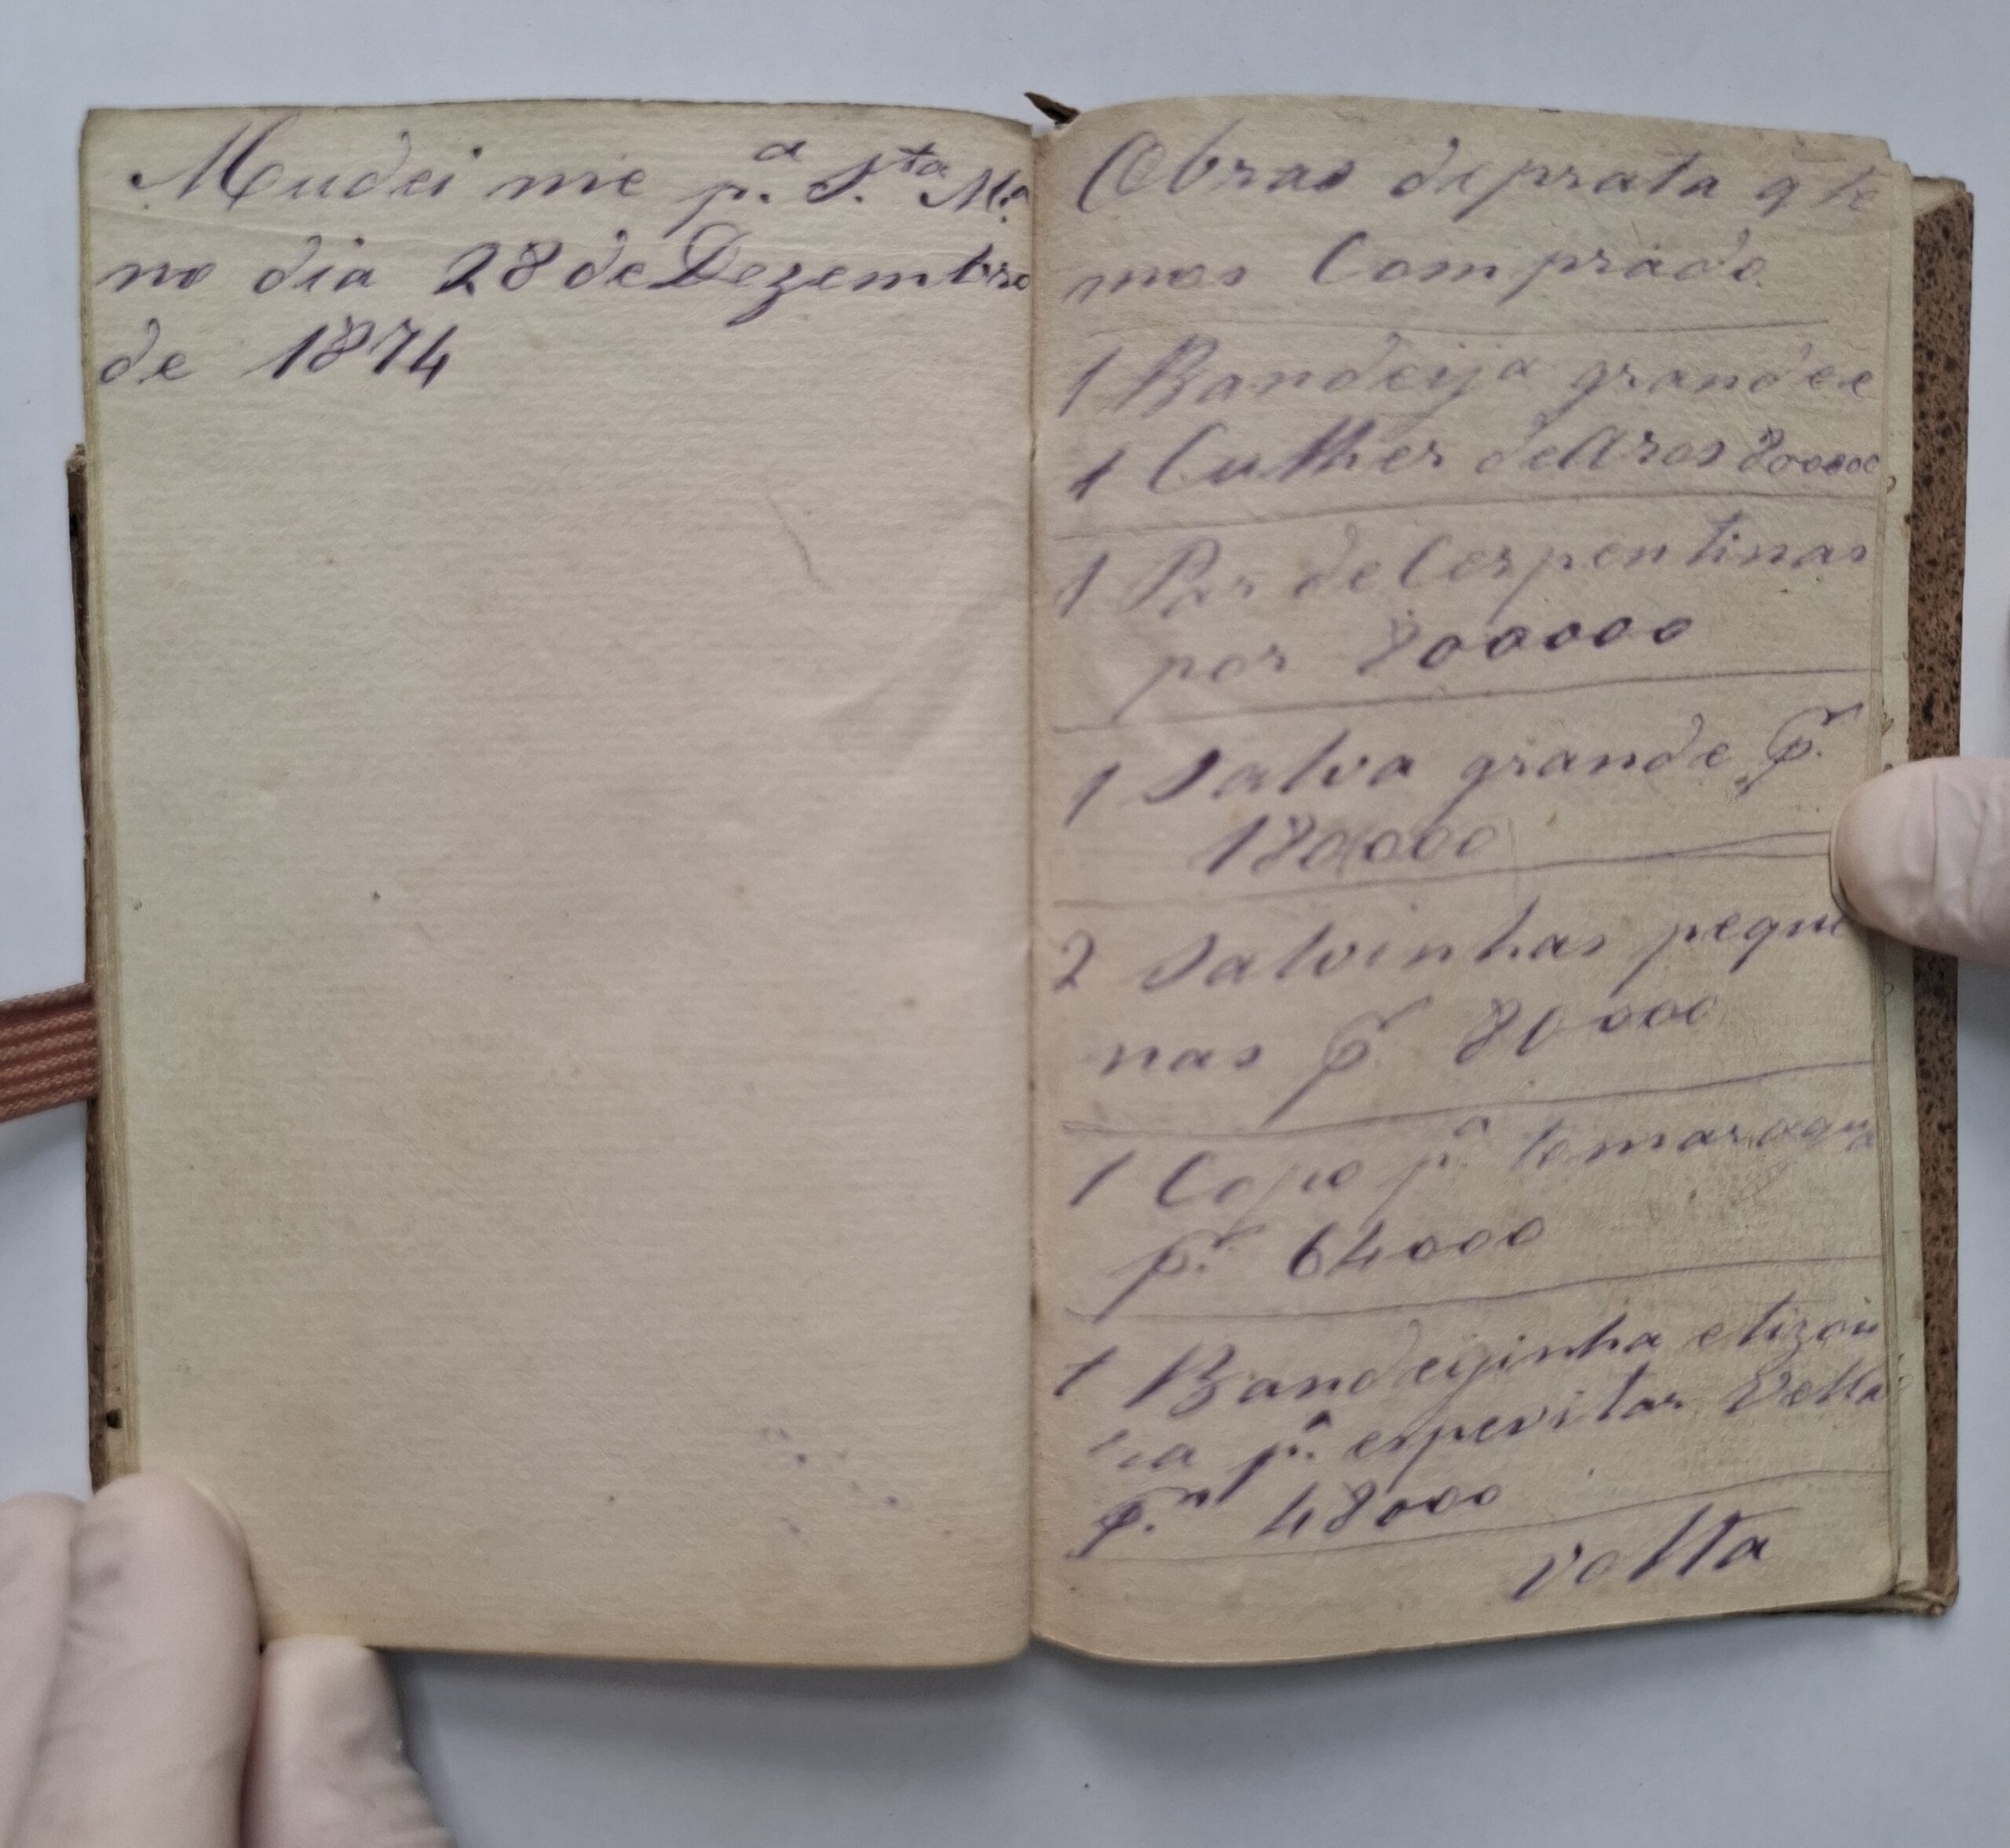 Mudei me p.ª S.ta M.ª
no dia 28 de Dezembro
de 1874
Obras de prata q te
mos Comprado
1 Bandeija grande e
1 Culher de Aros 200000
1 Par de Cerpentinas
por 200000
1 Salva grande p.r
180000
2 Salvinhas peque
nas p.r 80000
1 Copo p.ª tomar agua
p.r 64000
1 Bandeijinha e tizou
ra p.ª espevitar Vella
p.r 48000
volta